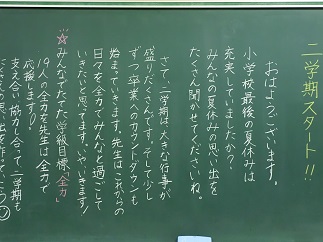 二学期スタート!!
おはようございます。
小学校最後の夏休みは
充実していましたか?
みんなの夏休みの思い出を
たくさん聞かせてくださいね。
さて、二学期は、大きな行事が
盛りだくさんです。そして少し
ずつ卒業へのカウントダウンも
始まっていきます。先生はこれからの
日々を全力でみんなと過ごして
いきたいと思てます。いやいきます!
☆みんなでたてた学級目標、「全力」
19人の全力を先生は全力で
応援します!!
支え合い協力し合って、二学期も
たくさんの思い出を